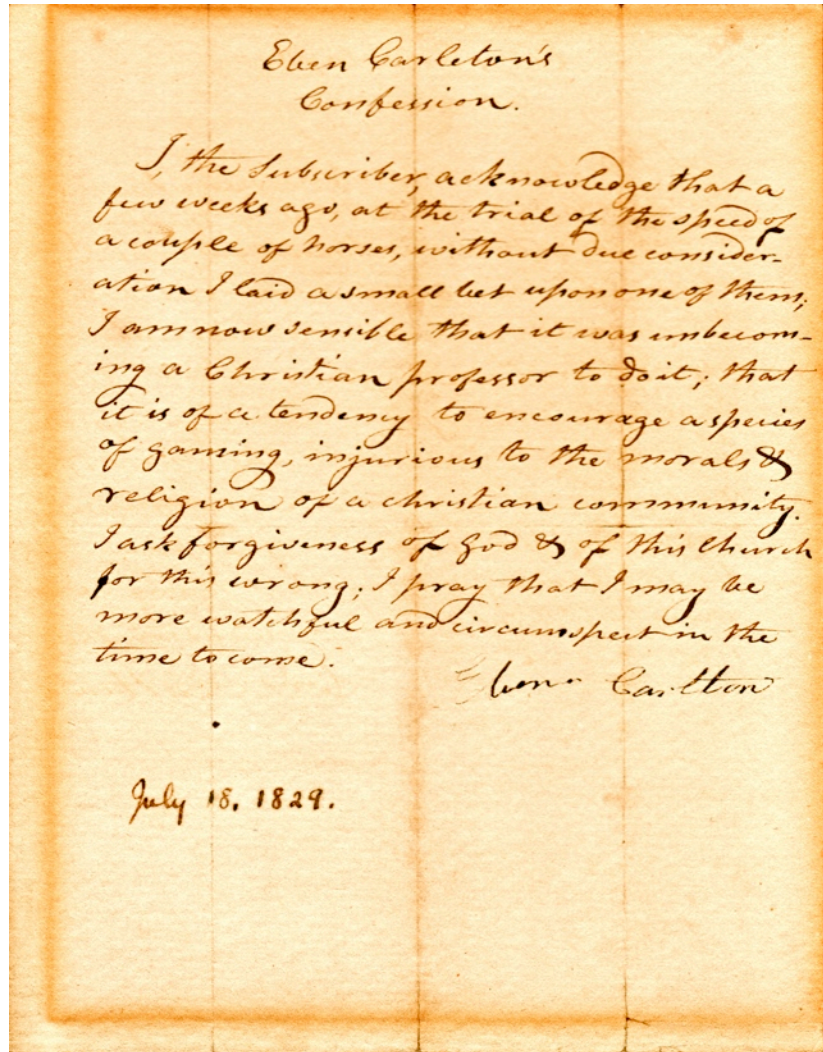 Eben Carleton's
Confession.
I, the Subscriber, acknowledge that a
few weeks ago, at the trial of the speed of
a couple of horses, without due consider-
ation I laid a small bet upon one of them;
I am now sensible that it was unbecom-
ing a Christian professor to do it; that
it is of a tendency to encourage a species
of gaming, injurious to the morals &
religion of a christian community.
I ask forgiveness of God & of this Church
for this wrong; I pray that I may be
more watchful and circumspect in the
time to come.
Ebenr Carlton
July 18. 1829.